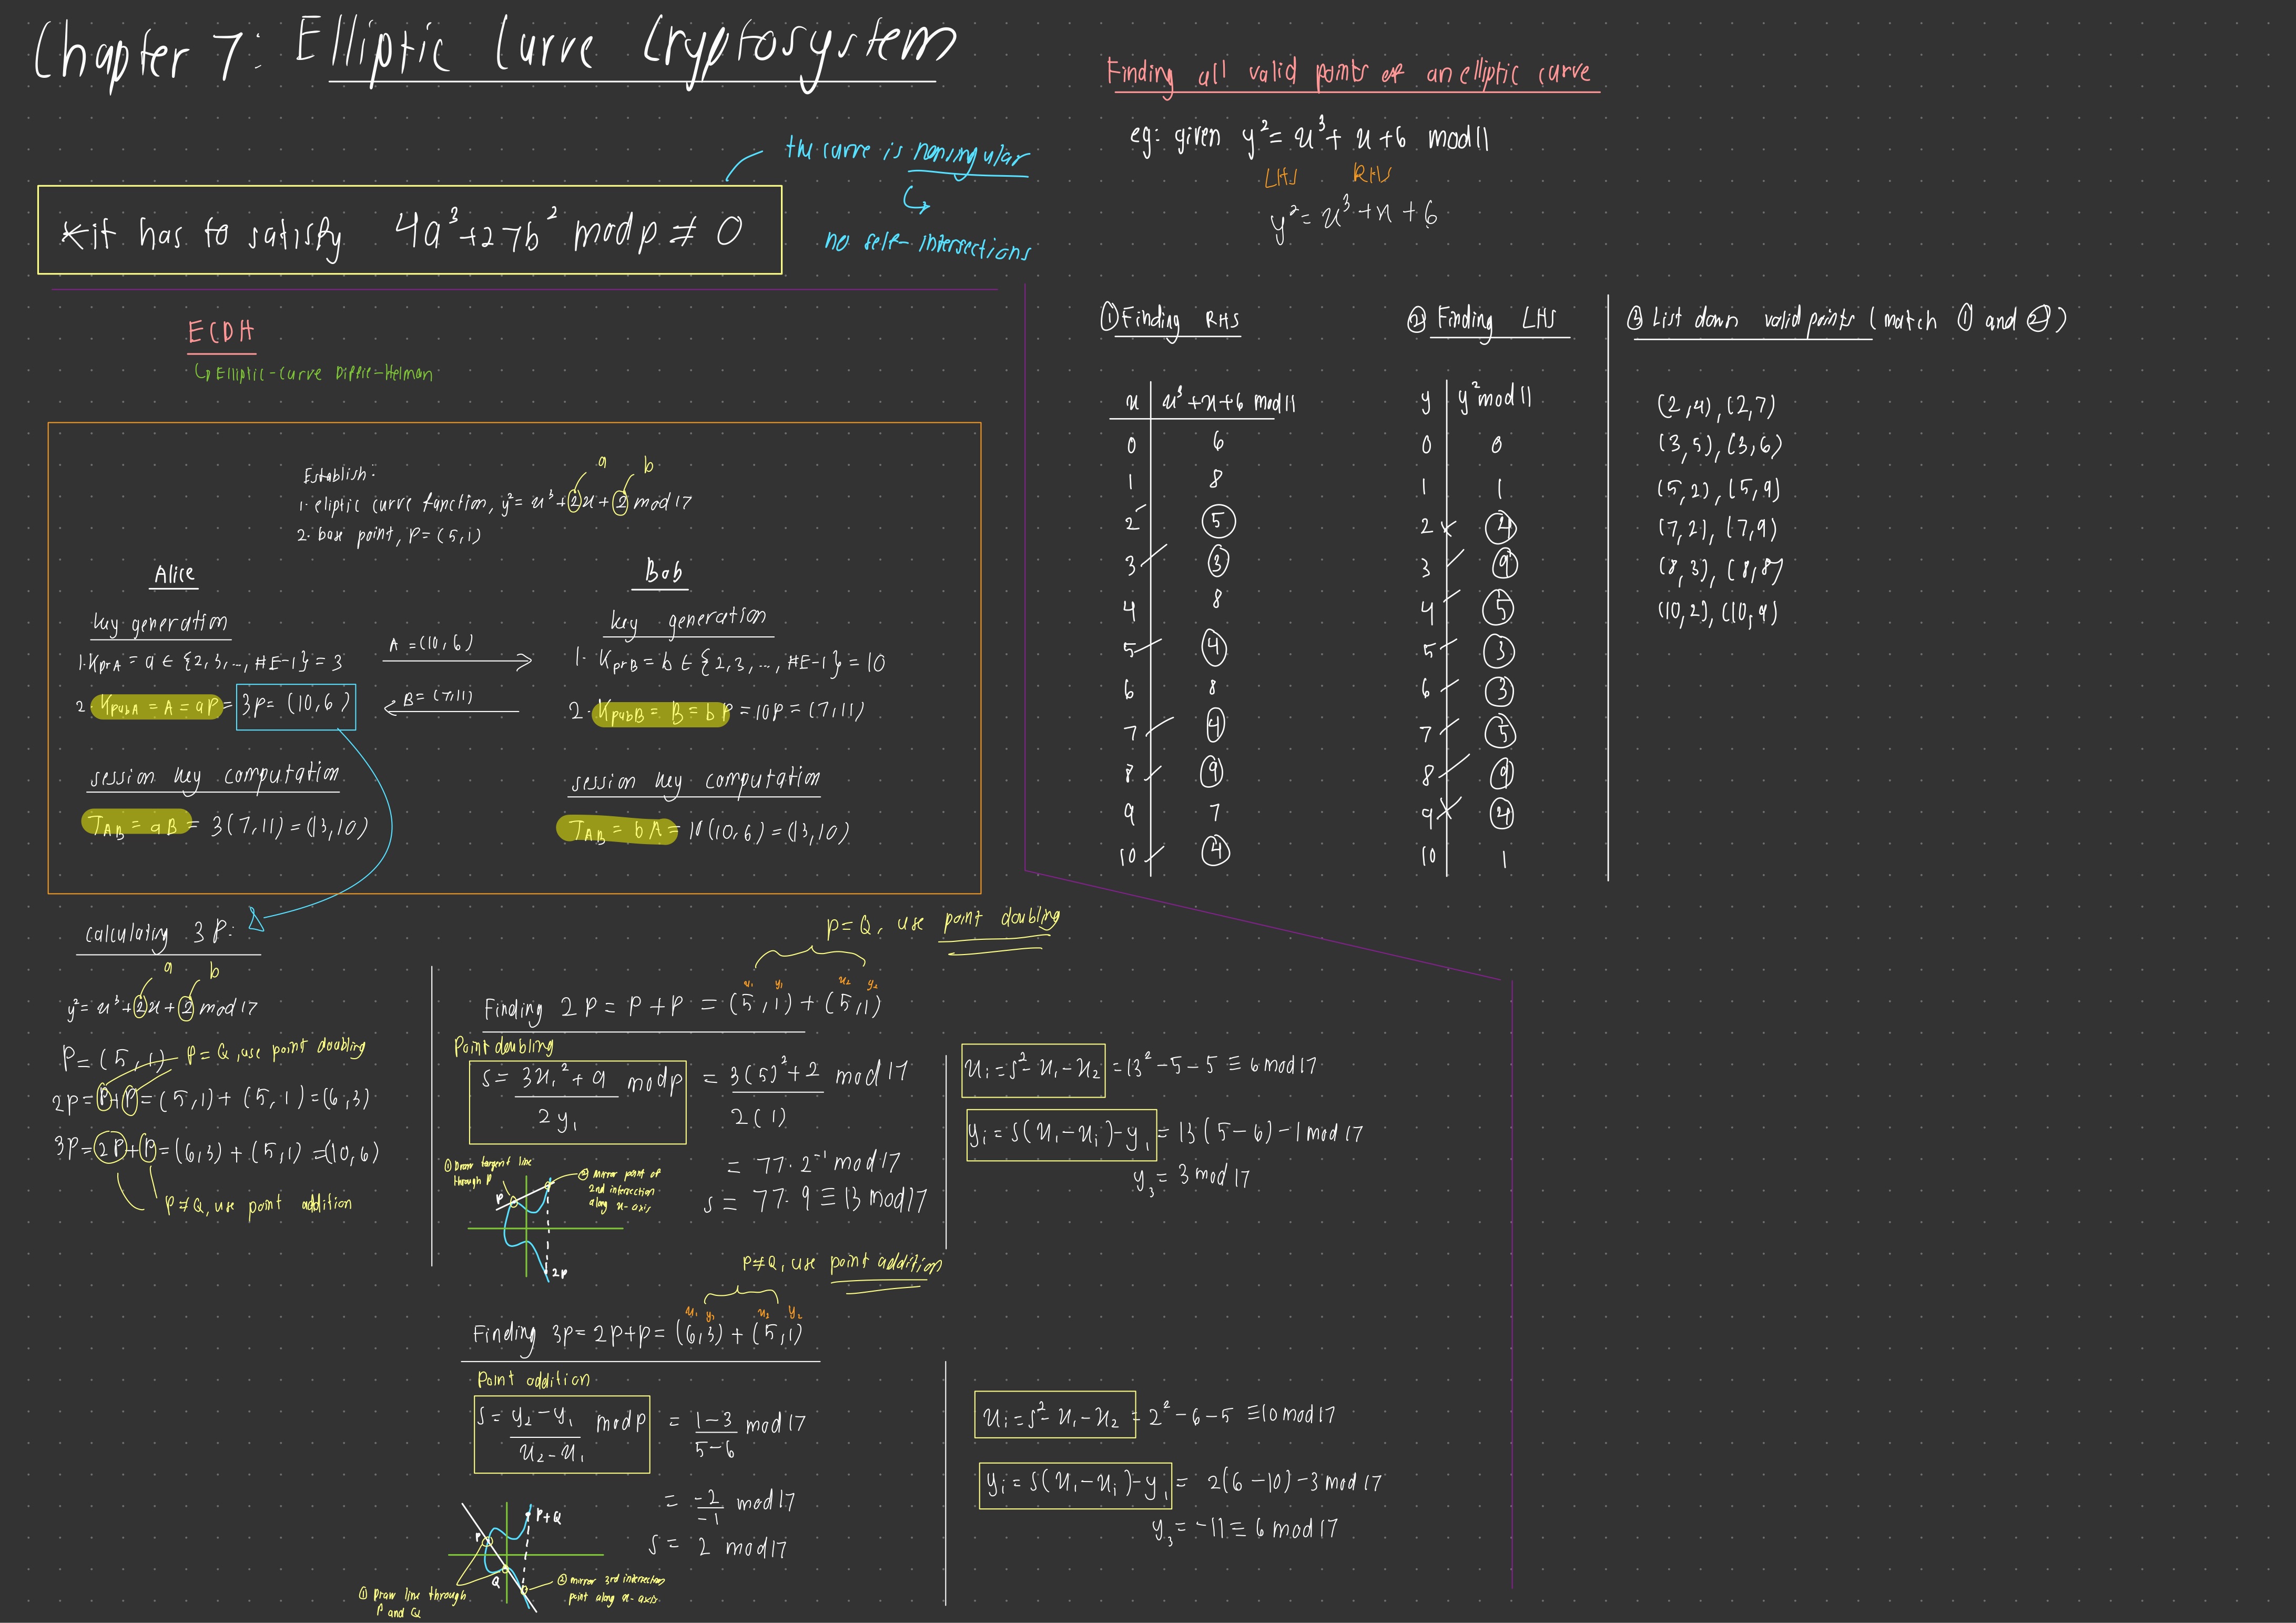 Chapter 7: Elliptic Curve Cryptosystem
the curve is nonsingular
no self-intersections
*it has to satisfy 4a³+27b² mod p ≠ 0
ECDH
↳ Elliptic-curve Diffie-Helman
Establish:
a b
1. eliptic curve function, y² = x³+2x+2 mod 17
2. base point, P = (5,1)
Alice
key generation
1. KprA = a ∈ {2,3,..., #E-1} = 3
2. KpubA = A = aP = 3P = (10,6)
session key computation
TAB = aB = 3(7,11) = (13,10)
A = (10,6)
B = (7,11)
Bob
key generation
1. KprB = b ∈ {2,3,..., #E-1} = 10
2. KpubB = B = bP = 10P = (7,11)
session key computation
TAB = bA = 10(10,6) = (13,10)
calculating 3P:
a b
y² = x³+2x+2 mod 17
P = (5,1) P = Q, use point doubling
2P = P+P = (5,1) + (5,1) = (6,3)
3P = 2P+P = (6,3) + (5,1) = (10,6)
P ≠ Q, use point addition
P = Q, use point doubling
x₁ y₁ x₂ y₂
Finding 2P = P+P = (5,1) + (5,1)
Point doubling
s = (3x₁²+a)/(2y₁) mod p = (3(5)²+2)/(2(1)) mod 17
= 77·2⁻¹ mod 17
s = 77·9 ≡ 13 mod 17
① Draw tangent line
through P
② mirror point of
2nd intersection
along x-axis
P
2P
xi = s²-x₁-x₂ = 13²-5-5 ≡ 6 mod 17
yi = s(x₁-xi)-y₁ = 13(5-6)-1 mod 17
y₃ = 3 mod 17
P≠Q, use point addition
x₁ y₁ x₂ y₂
Finding 3P = 2P+P = (6,3) + (5,1)
Point addition
s = (y₂-y₁)/(x₂-x₁) mod p = (1-3)/(5-6) mod 17
= -2/-1 mod 17
s = 2 mod 17
P+Q
P
Q
① Draw line through
P and Q
② mirror 3rd intersection
point along x-axis
xi = s²-x₁-x₂ = 2²-6-5 ≡ 10 mod 17
yi = s(x₁-xi)-y₁ = 2(6-10)-3 mod 17
y₃ = -11 ≡ 6 mod 17
Finding all valid points of an elliptic curve
eg: given y² = x³+x+6 mod 11
LHS RHS
y² = x³+x+6
① Finding RHS
x x³+x+6 mod 11
0 6
1 8
2 5
3 3
4 8
5 4
6 8
7 4
8 9
9 7
10 4
② Finding LHS
y y² mod 11
0 0
1 1
2 4
3 9
4 5
5 3
6 3
7 5
8 9
9 4
10 1
③ List down valid points (match ① and ②)
(2,4), (2,7)
(3,5), (3,6)
(5,2), (5,9)
(7,2), (7,9)
(8,3), (8,8)
(10,2), (10,9)